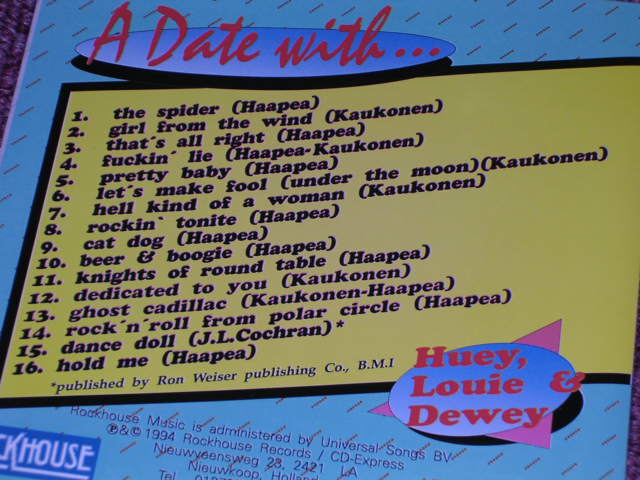 A Date with...
1. the spider (Haapea)
2. girl from the wind (Kaukonen)
3. that's all right (Haapea)
4. fuckin´ lie (Haapea-Kaukonen)
5. pretty baby (Haapea)
6. let´s make fool (under the moon)(Kaukonen)
7. hell kind of a woman (Kaukonen)
8. rockin` tonite (Haapea)
9. cat dog (Haapea)
10. beer & boogie (Haapea)
11. knights of round table (Haapea)
12. dedicated to you (Kaukonen)
13. ghost cadillac (Kaukonen-Haapea)
14. rock´n´roll from polar circle (Haapea)
15. dance doll (J.L.Cochran)*
16. hold me (Haapea)
*published by Ron Weiser publishing Co., B.M.I
Huey,
Louie &
Dewey
Rockhouse Music is administered by Universal Songs BV
℗&©1994 Rockhouse Records / CD-Express
Nieuwveensweg 23, 2421 LA
Nieuwkoop, Holland
Tel.
CKHOUSE